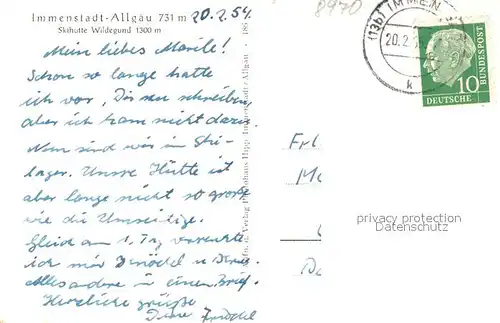 Immenstadt-Allgäu 731 m
Skihütte Wildegund 1300 m
20.2.54.
8970
Mein liebes Marile!
Schon so lange hatte
ich vor, Dir zu schreiben,
aber ich kam nicht dazu.
Nun sind wir im Ski-
lager. Unsre Hütte ist
aber lange nicht so groß
wie die Umseitige.
Gleich am 1. Tag verrenkte
ich mir Knöchel u.
Alles andere in einem Brief.
Herzliche Grüße
Deine Friedel
Verlag Photohaus Hipp, Immenstadt-Allgäu
(13b) IMMEN
20.2.5
k
10
DEUTSCHE
BUNDESPOST
Frl
privacy protection
Datenschutz